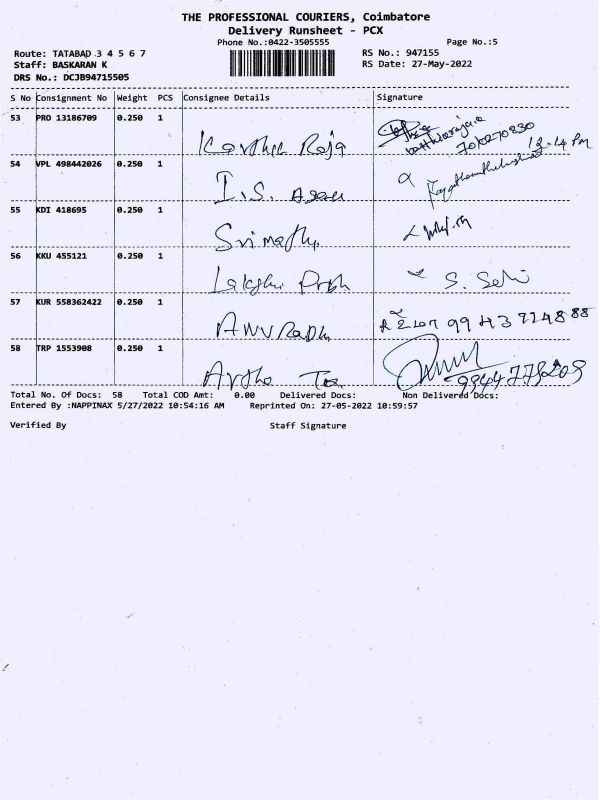 THE PROFESSIONAL COURIERS, Coimbatore
Delivery Runsheet - PCX
Phone No.:0422-3505555
Page No.:5
Route: TATABAD 3 4 5 6 7
RS No.: 947155
Staff: BASKARAN K
RS Date: 27-May-2022
DRS No.: DCJB94715505
S No Consignment No Weight PCS Consignee Details Signature
53 PRO 13186709 0.250 1 Karthic Raja
12.14 PM
54 VPL 498442026 0.250 1 I.S.
55 KDI 418695 0.250 1 Srimathy
56 KKU 455121 0.250 1 S. Selvi
57 KUR 558362422 0.250 1 Anuradha
58 TRP 1553908 0.250 1
Total No. Of Docs: 58 Total COD Amt: 0.00 Delivered Docs: Non Delivered Docs:
Entered By :NAPPINAX 5/27/2022 10:54:16 AM Reprinted On: 27-05-2022 10:59:57
Verified By Staff Signature